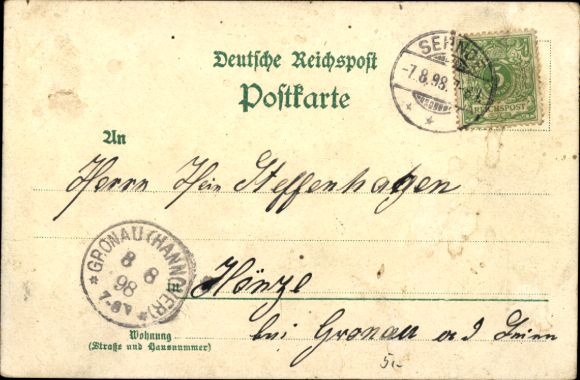 Deutsche Reichspost
Postkarte
SEHNDE
-7.8.98. 7-8N
REICHSPOST
An
Herrn Hein Steffenhagen
GRONAU (HANNOVER)
8 8
98
7-8V
in Hönze
bei Gronau a d Leine
Wohnung
(Straße und Hausnummer)
5,-